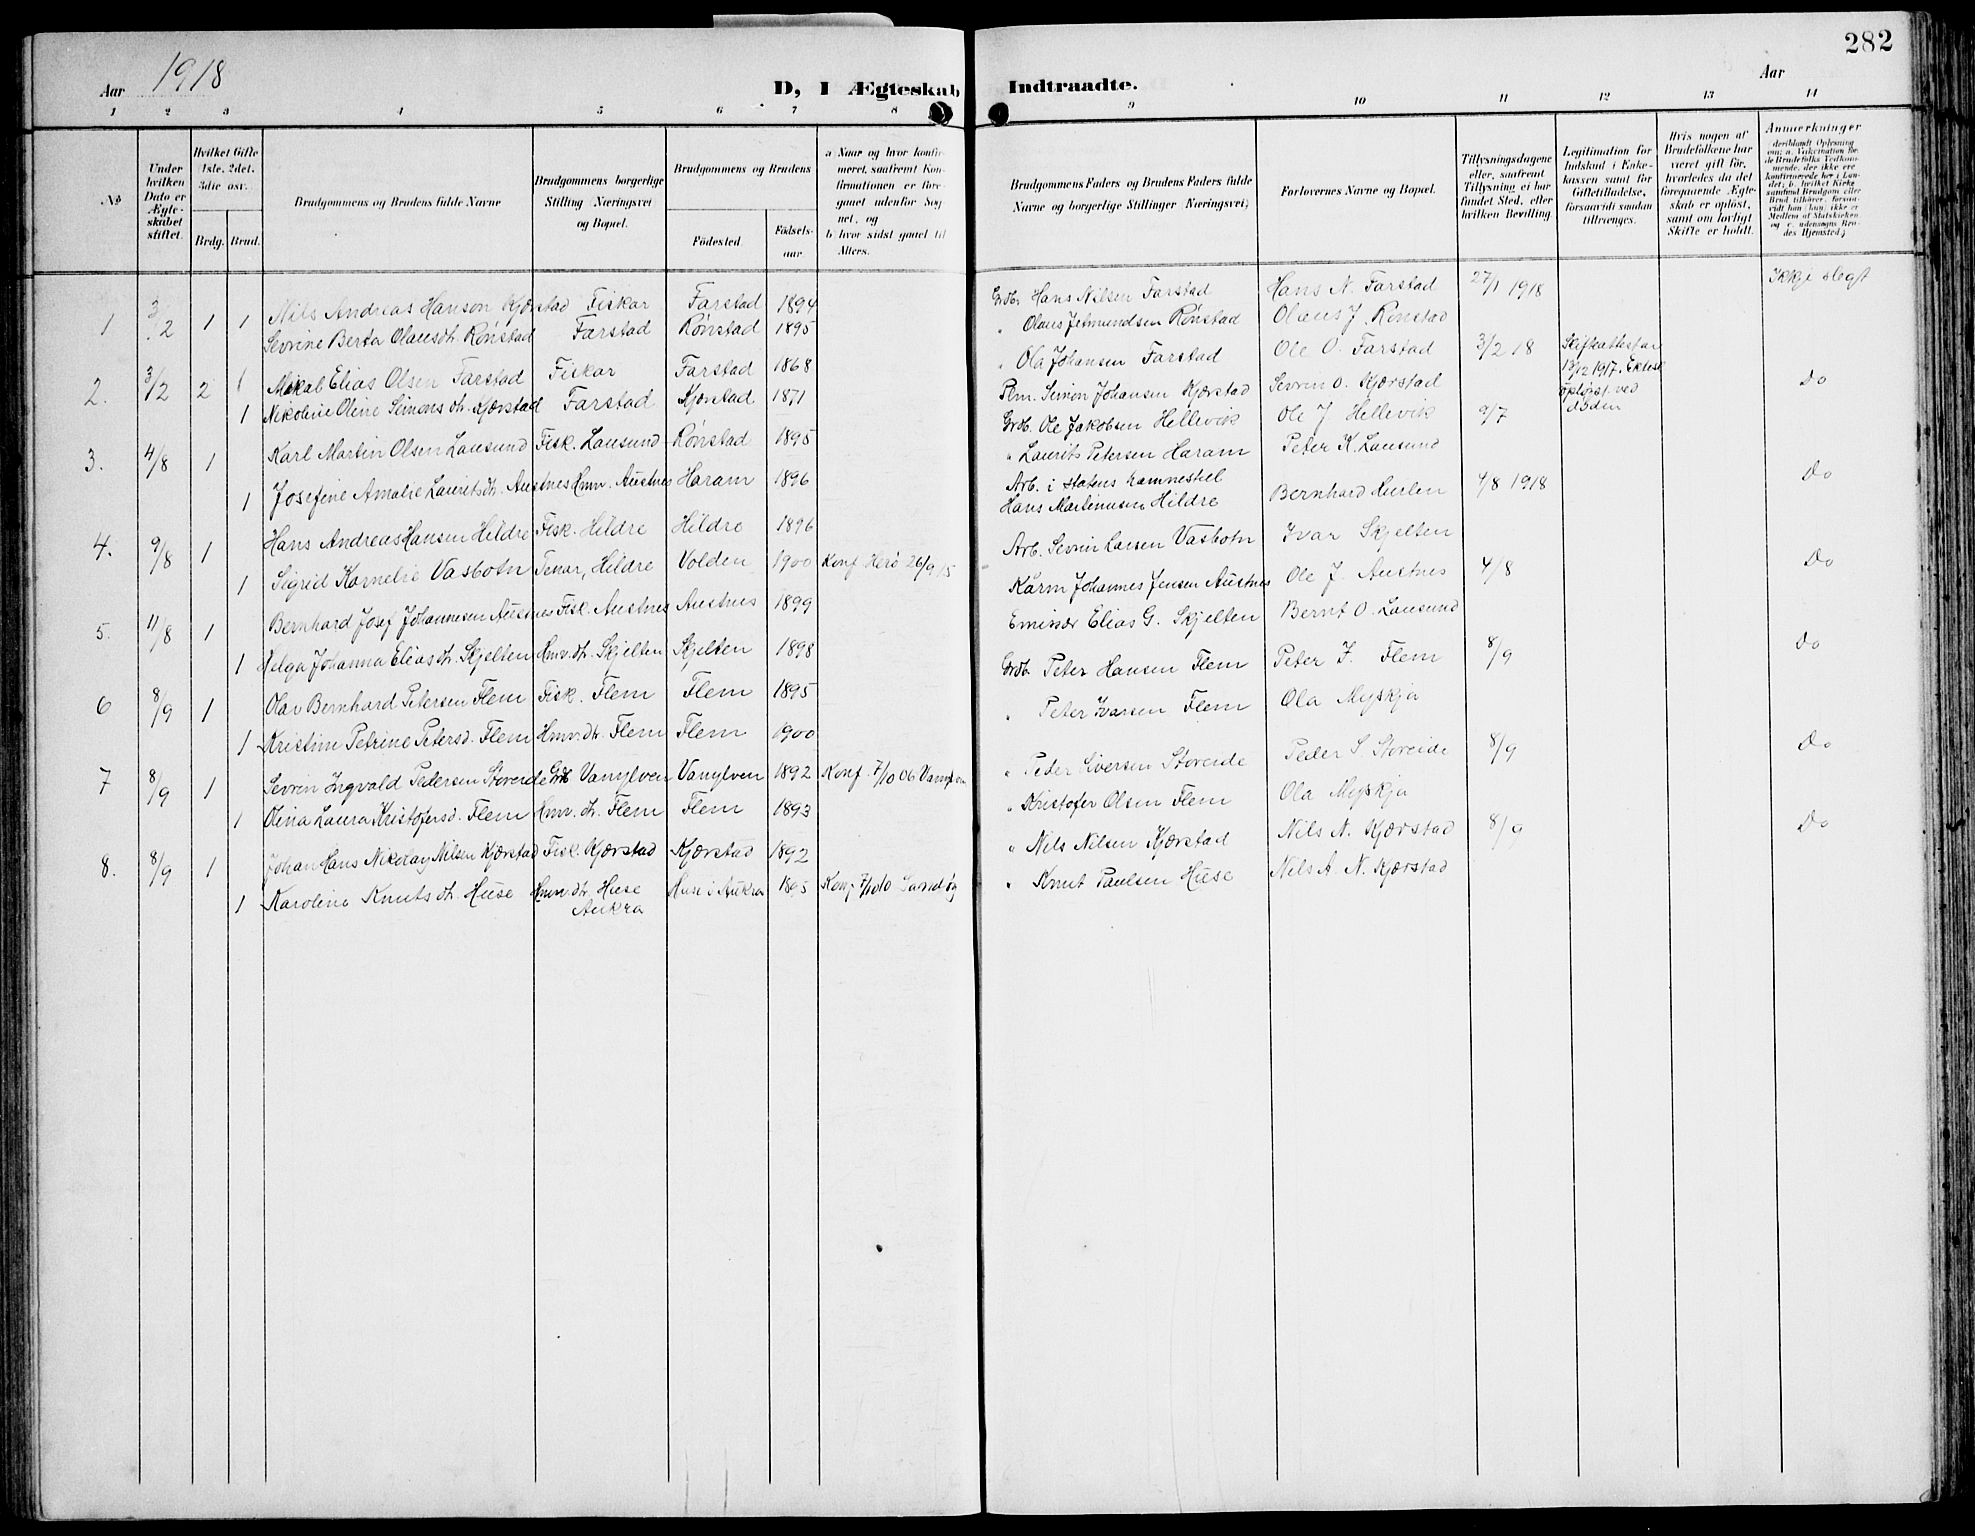 282
Aar 1918
D, 1 Ægteskab Indtraadte.
Aar
1 2 3 4 5 6 7 8 9 10 11 12 13 14
№
Under hvilken Dato er Ægteskabet stiftet.
Hvilket Gifte 1ste, 2det, 3die osv.
Brdg. Brud.
Brudgommens og Brudens fulde Navne
Brudgommens borgerlige Stilling (Næringsvei) og Bopæl.
Brudgommens og Brudens
Födested.
Födselsaar
a Naar og hvor konfirmeret, saafremt Konfirmationen er foregaaet udenfor Sognet, og
b hvor sidst gaaet til Alters.
Brudgommens Faders og Brudens Faders fulde Navne og borgerlige Stillinger (Næringsvei)
Forlovernes Navne og Bopæl.
Tillysningsdagene eller, saafremt Tillysning ei har fundet Sted, efter hvilken Bevilling.
Legitimation for Indskud i Enkekassen samt for Giftetilladelse, forsaavidt saadan tiltrænges.
Hvis nogen af Brudefolkene har været gift för, hvorledes da det foregaaende Ægteskab er oplöst, samt om lovligt Skifte er holdt.
Anmerkninger
1 3/2 1 1 Nils Andreas Hanson Kjærstad Fiskar Farstad 1894 Grdb. Hans Nilsen Farstad Hans N. Farstad 27/1 1918 Ikkje slegt
Sevrine Berta Olausdtr. Rönstad Farstad Rönstad 1895 " Olaus Jetmundsen Rönstad Olaus J. Rönstad
2. 3/2 2 1 Mikal Elias Olsen Farstad Fiskar Farstad 1868 " Ola Johansen Farstad Ole O. Farstad 3/2 18 Skifteattest 13/12 1917. Ektesk. oplöyst ved döden
1 Nikoline Oline Simonsdtr. Kjærstad Farstad Kjærstad 1871 Plm. Simon Johansen Kjærstad Sevrin O. Kjærstad Do
3. 4/8 1 Karl Martin Olsen Lausund Fisk. Lausund Rönstad 1895 Grdb. Ole Jakobsen Hellevik Ole J Hellevik 9/7
1 Josefine Amalie Lauritsdtr. Austnes Hmv. Austnes Haram 1896 " Laurits Petersen Haram Peter K. Lausund Do
4. 9/8 1 Hans Andreas Hansen Hildre Fisk. Hildre Hildre 1896 Arb. i Statens havnestel Hans Martinussen Hildre Bernhard Hurlen 4/8 1918
1 Sigrid Kornelie Vasbotn Tenar, Hildre Volden 1900 Konf Herö 26/9 15 Arb. Sevrin Larsen Vasbotn Ivar Skjelten Do
5. 11/8 1 Bernhard Josef Johannesen Austnes Fisk. Austnes Austnes 1899 Kårm Johannes Jensen Austnes Ole J. Austnes 4/8
1 Helga Johanna Eliasdtr. Skjelten Hmv.dtr. Skjelten Skjelten 1898 Emissær Elias G. Skjelten Bernt O. Lausund Do
6 8/9 1 Olav Bernhard Petersen Flem Fisk. Flem Flem 1895 Grdb. Peter Hansen Flem Peter J. Flem 8/9
1 Kristine Petrine Petersd. Flem Hmv.dtr. Flem Flem 1900 " Peter Ivarsen Flem Ola Myskja Do
7 8/9 1 Sevrin Ingvald Pedersen Storeide Grdb Vanylven Vanylven 1892 Konf. 7/10 06 Vanylven " Peder Siversen Storeide Peder S Storeide 8/9
1 Olina Laura Kristofersd. Flem Hmv.dtr. Flem Flem 1893 " Kristofer Olsen Flem Ola Myskja Do
8. 8/9 1 Johan Hans Nikolay Nilsen Kjærstad Fisk. Kjærstad Kjærstad 1892 " Nils Nilsen Kjærstad Nils N. Kjærstad 8/9
1 Karoline Knutsdtr. Huse Hmv.dtr. Huse Aukra Huse i Aukra 1895 Konf 7/10 10 Sandöy " Knut Paulsen Huse Nils A. N. Kjærstad